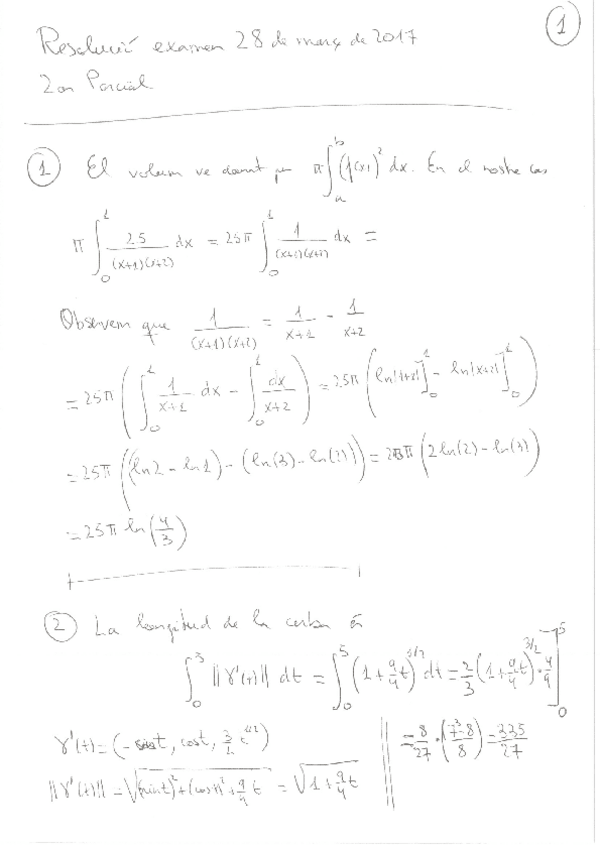 1
Resolució examen 28 de març de 2017
2on Parcial
1 El volum ve donat per π∫_a^b (f(x))² dx. En el nostre cas
π ∫_0^1 25/((x+1)(x+2)) dx = 25π ∫_0^1 1/((x+1)(x+2)) dx =
Observem que 1/((x+1)(x+2)) = 1/(x+1) - 1/(x+2)
= 25π (∫_0^1 1/(x+1) dx - ∫_0^1 dx/(x+2)) = 25π (ln|1+x|]_0^1 - ln|x+2|]_0^1)
= 25π ((ln2 - ln1) - (ln(3) - ln(2))) = 25π (2ln(2) - ln(3))
= 25π ln(4/3)
2 La longitud de la corba és
∫_0^5 ||γ'(t)|| dt = ∫_0^5 (1 + 9/4 t)^{1/2} dt = 2/3 (1 + 9/4 t)^{3/2} · 4/9]_0^5
γ'(t) = (-sint, cost, 3/2 t^{1/2}) = 8/27 · (7³-8/8) = 335/27
||γ'(t)|| = √((sint)² + (cost)² + 9/4 t) = √(1 + 9/4 t)